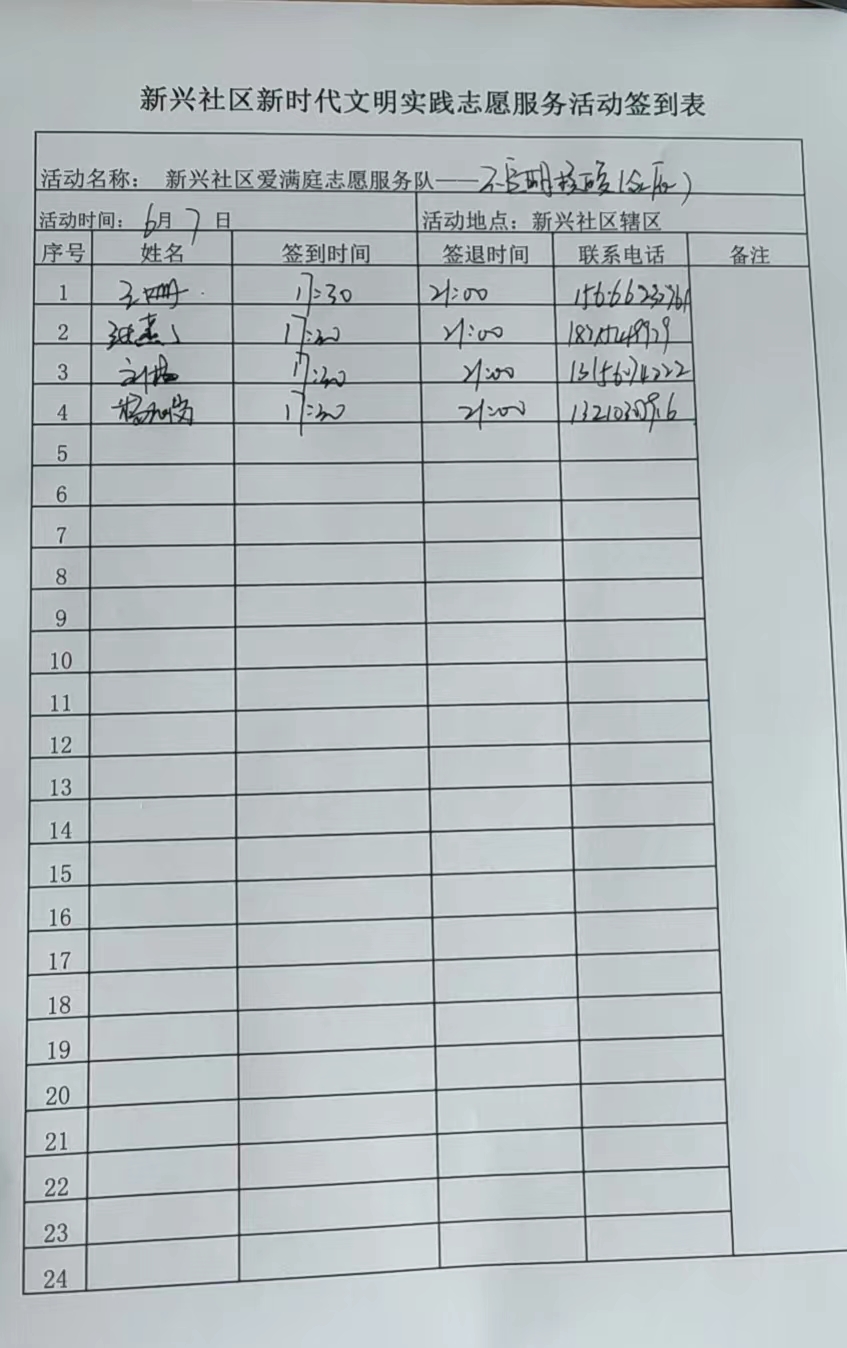 新兴社区新时代文明实践志愿服务活动签到表
活动名称： 新兴社区爱满庭志愿服务队——
活动时间：6月7日 活动地点：新兴社区辖区
序号 姓名 签到时间 签退时间 联系电话 备注
1 17:30 21:00
2 17:30 21:00
3 17:30 21:00
4 17:30 21:00
5
6
7
8
9
10
11
12
13
14
15
16
17
18
19
20
21
22
23
24